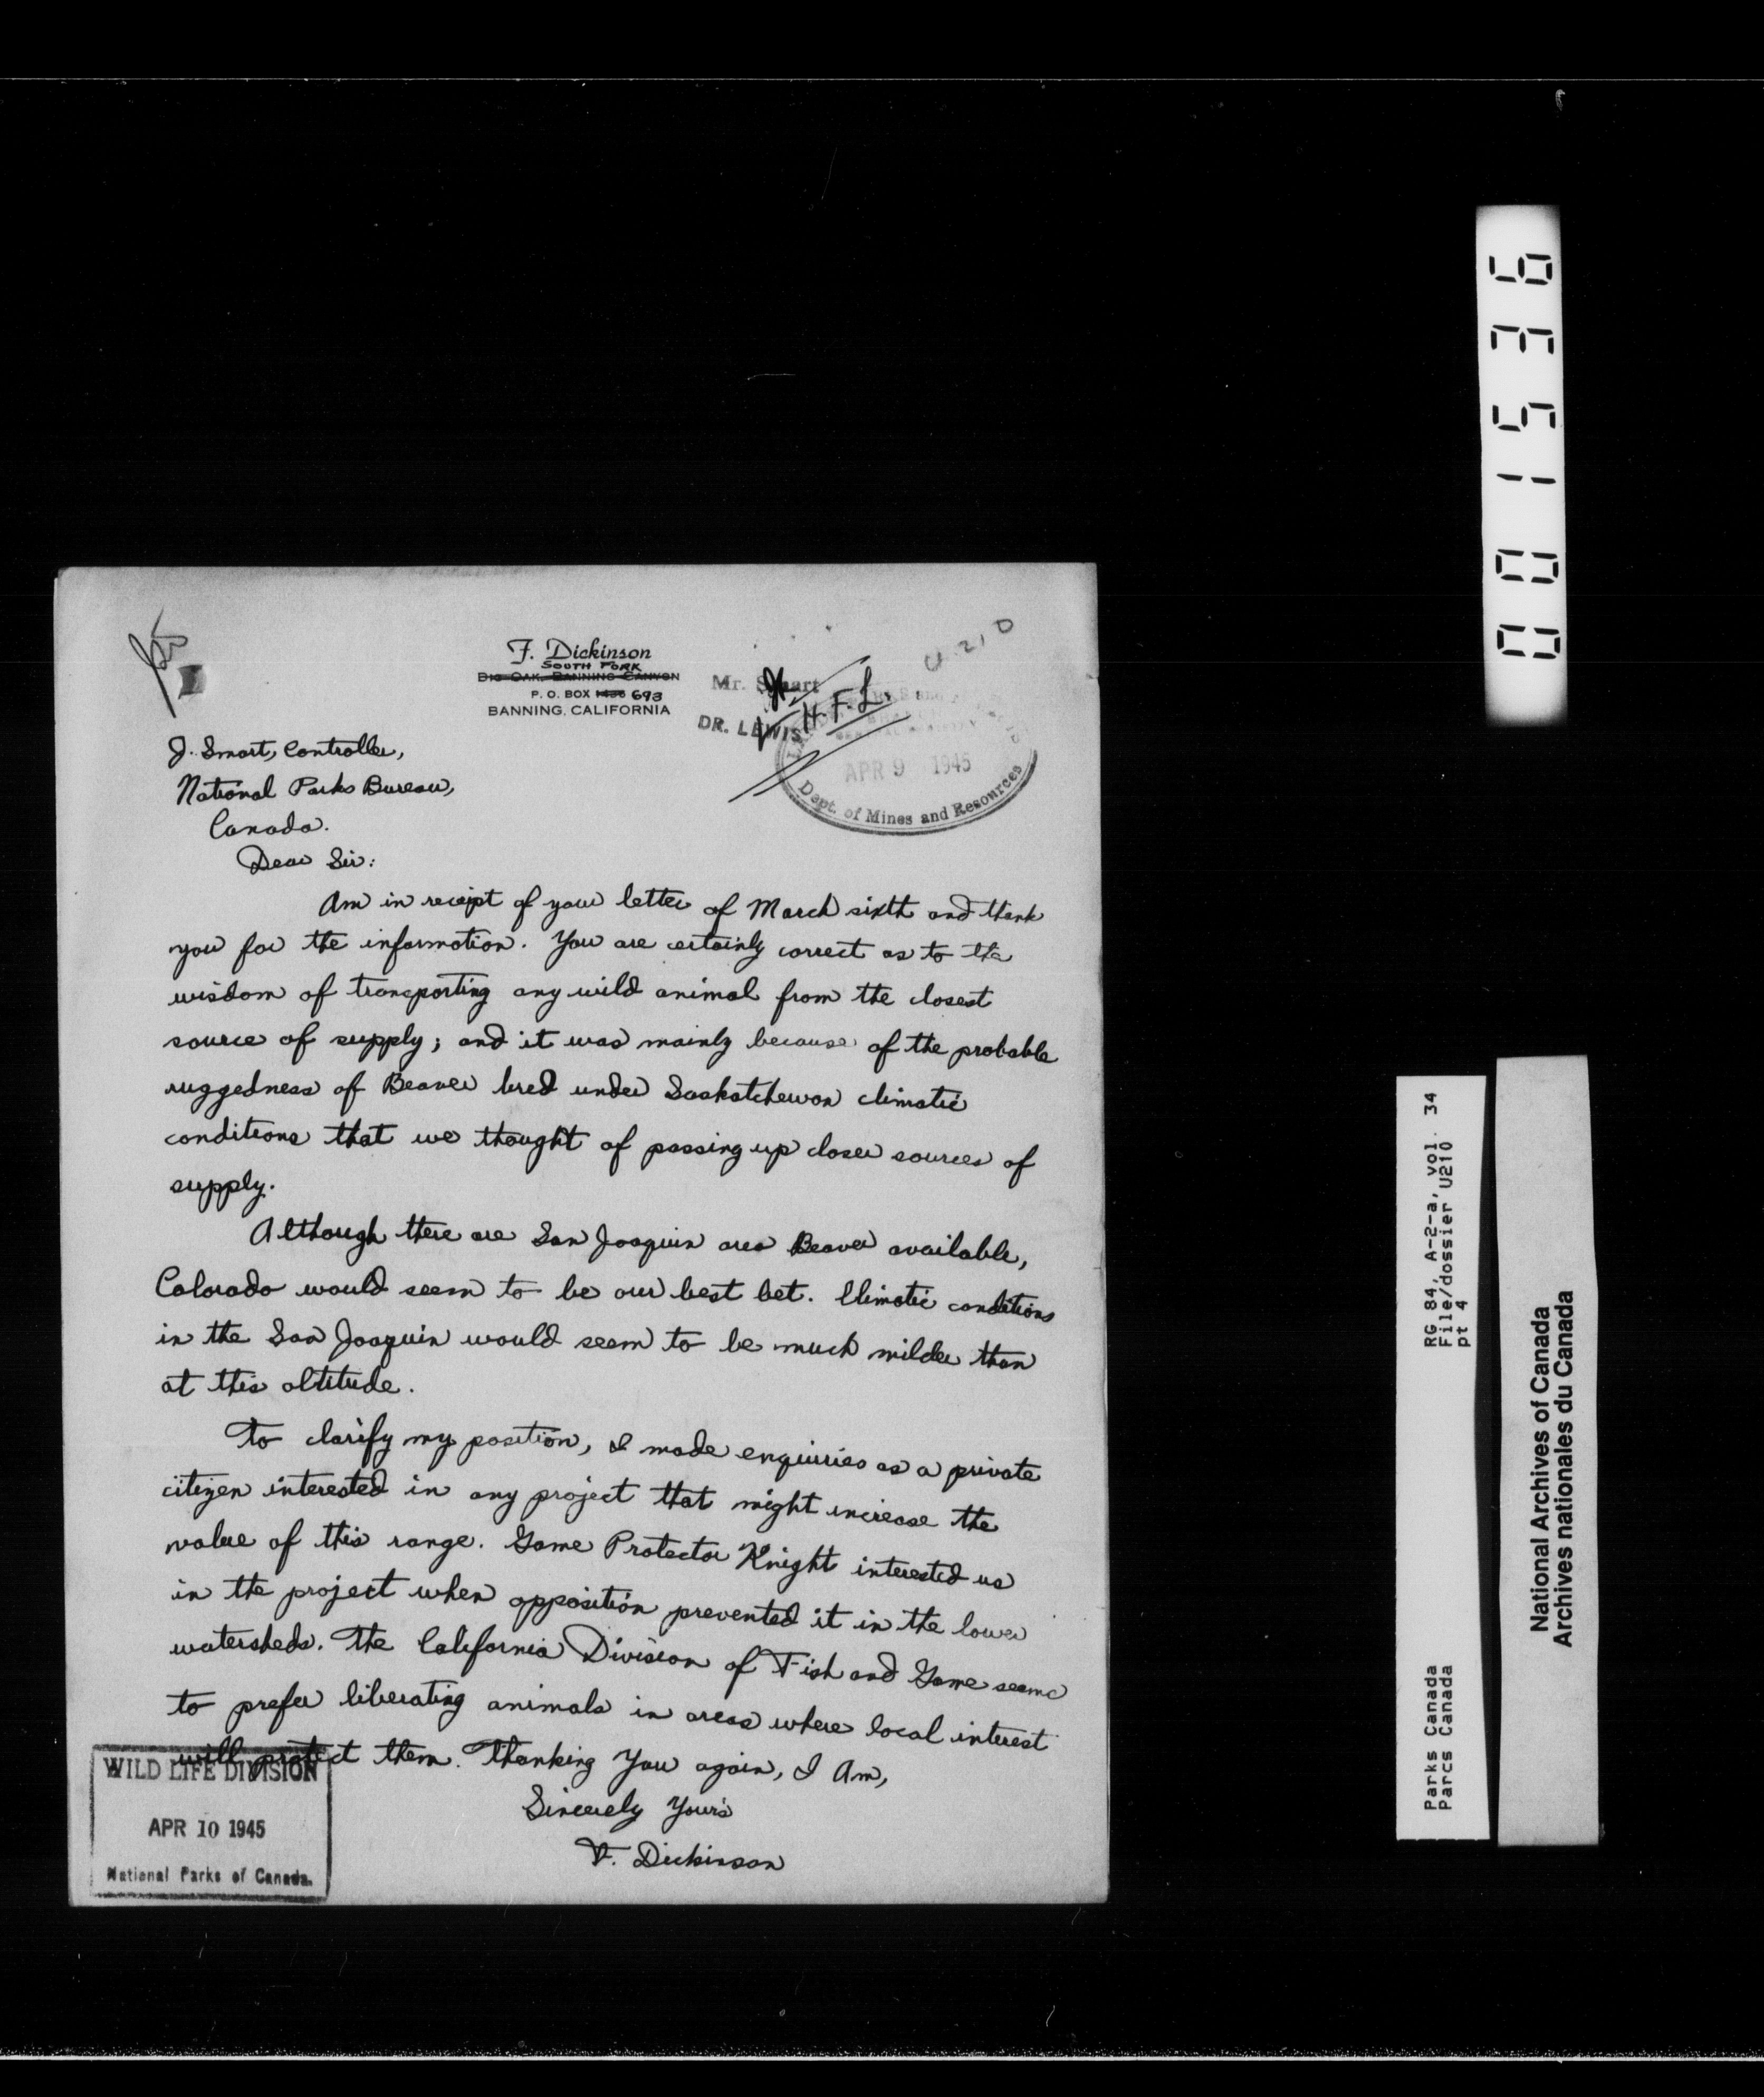 F. Dickinson
SOUTH FORK
BIG OAK, BANNING CANYON
P. O. BOX 1436 693
BANNING, CALIFORNIA
U-210
Mr. Smart
DR. LEWIS
H.F.L.
APR 9 1945
Dept. of Mines and Resources
J. Smart, Controller,
National Parks Bureau,
Canada.
Dear Sir:
Am in receipt of your letter of March sixth and thank
you for the information. You are certainly correct as to the
wisdom of transporting any wild animal from the closest
source of supply; and it was mainly because of the probable
ruggedness of Beaver bred under Saskatchewan climatic
conditions that we thought of passing up closer sources of
supply.
Although there are San Joaquin area Beaver available,
Colorado would seem to be our best bet. Climatic conditions
in the San Joaquin would seem to be much milder than
at this altitude.
To clarify my position, I made enquiries as a private
citizen interested in any project that might increase the
value of this range. Game Protector Knight interested us
in the project when opposition prevented it in the lower
watersheds. The California Division of Fish and Game seems
to prefer liberating animals in areas where local interest
will protect them. Thanking You again, I Am,
Sincerely Yours
F. Dickinson
WILD LIFE DIVISION
APR 10 1945
National Parks of Canada.
001536
RG 84, A-2-a, vol. 34
File/dossier U210
pt 4
Parks Canada
Parcs Canada
National Archives of Canada
Archives nationales du Canada